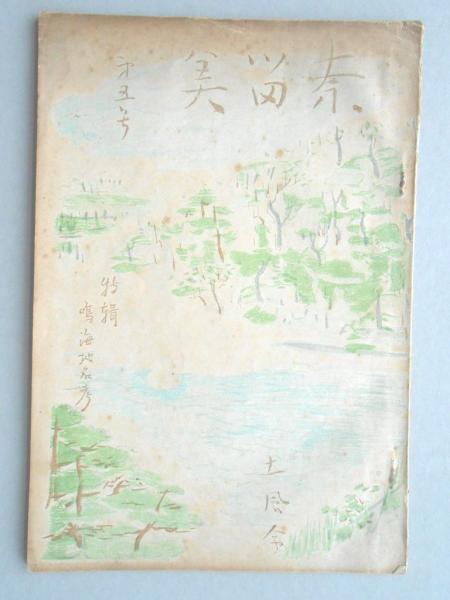 奈留美
第五号
特輯
鳴海地名考
土風会